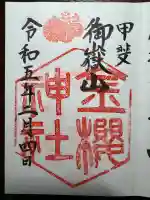 甲斐
御嶽山
金櫻
神社
令和五年二月四日